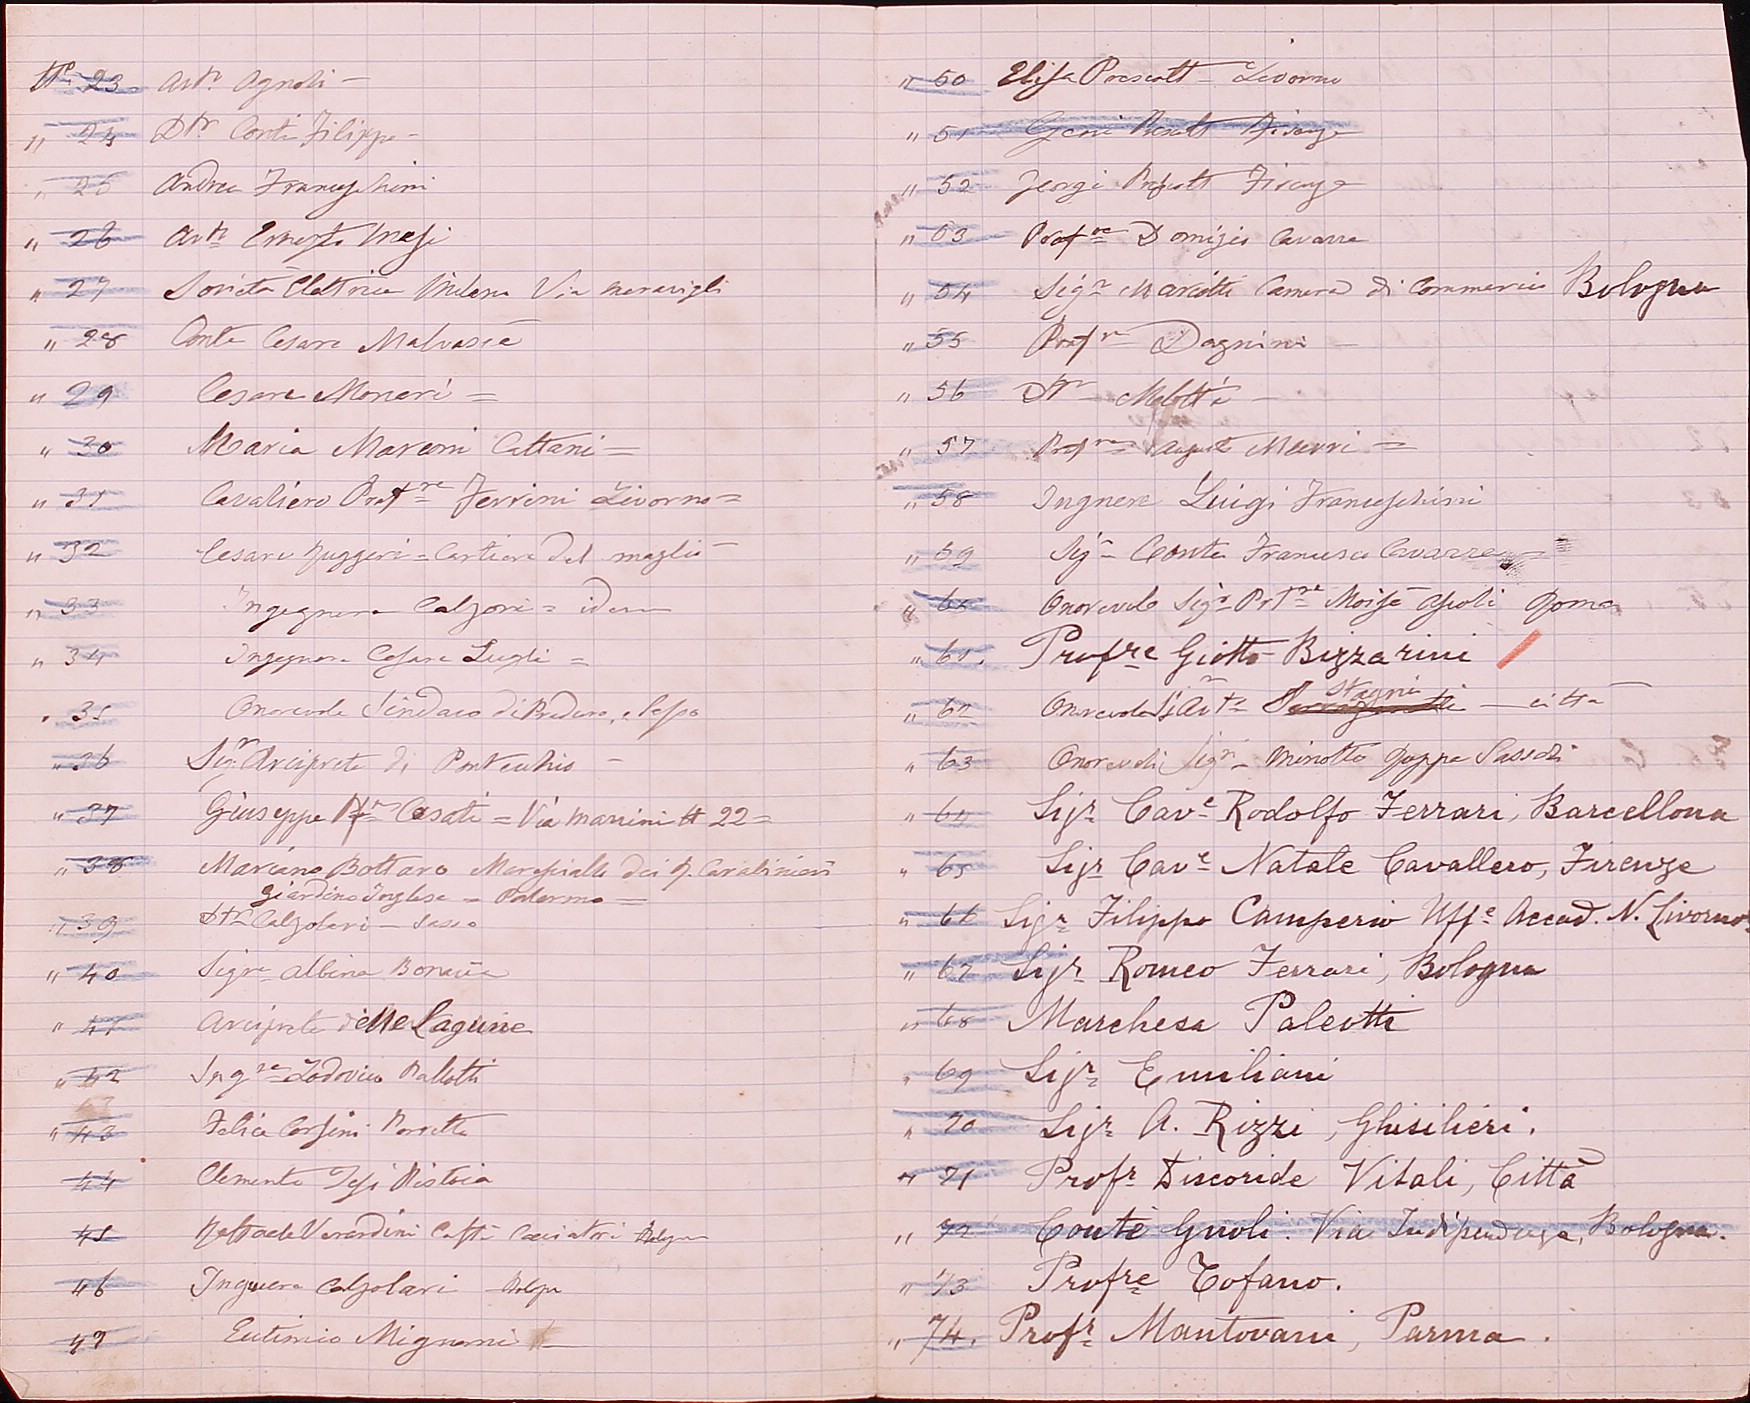 No 23 Avvo Agnoli –
" 24 Dtr Conti Filippo –
" 25 Andrea Franceschini
" 26 Avvo Ernesto Masi
" 27 Società Elettrica Milano Via Meravigli
" 28 Conte Cesare Malvasia
" 29 Cesare Monari =
" 30 Maria Marconi Cattani =
" 31 Cavaliere Profre Ferrini Livorno =
" 32 Cesare Ruggeri = Cartiera del Maglio –
" 33 Ingegnere Calzoni = idem
" 34 Ingegnere Cesare Lugli =
" 35 Onorevole Sindaco di Praduro, e Sasso
" 36 Sigr Arciprete di Pontecchio –
" 37 Giuseppe Casati = Via Manzini N 22 =
" 38 Marciano Bottaro Maresciallo dei R. Carabinieri
Giardino Inglese = Palermo =
" 39 Dtr Calzolari – Sasso
" 40 Signra Albina Bonacia
" 41 Arciprete delle Lagune
" 42 Ingre Lodovico Pallotti
" 43 Felice Corsini Porretta
44 Clemente Tesi Pistoia
45 Raffaele Verardini Caffè Cacciatori Bologna
46 Ingnere Calzolari Bologna
47 Eutimio Mignani
" 50 Elisa Prescott – Livorno
" 51 Prescott Firenze
" 52 Georgi Prescott Firenze
" 53 Profre Domizio Cavazza
" 54 Sigr Marcotti Camera di Commercio Bologna
" 55 Profre Dagnini –
" 56 Dtr Melotti –
" 57 Profre Augusto Murri =
" 58 Ingnere Luigi Franceschini
" 59 Sigr Conte Francesco Cavazza =
" 60 Onorevole Sigr Moisè Ascoli Roma
" 61. Profre Giotto Bizzarini
" 62 Onorevole Sigr Avvto Stagni — città
" 63 Onorevoli Sigri Minotto Sassoli
" 64 Sigr Cave Rodolfo Ferrari, Barcellona
" 65 Sigr Cave Natale Cavallero, Firenze
" 66 Sigr Filippo Camperio Uffe Accad. N. Livorno
" 67 Sigr Romeo Ferrari, Bologna
" 68 Marchesa Paleotti
" 69 Sigr Emiliani
" 70 Sigr A. Rizzi, Ghisilieri.
" 71 Profr Discoride Vitali, Città
" 72 Conte Gnoli. Via Indipendenza, Bologna.
" 73 Profre Tofano.
" 74. Profr Mantovani, Parma.